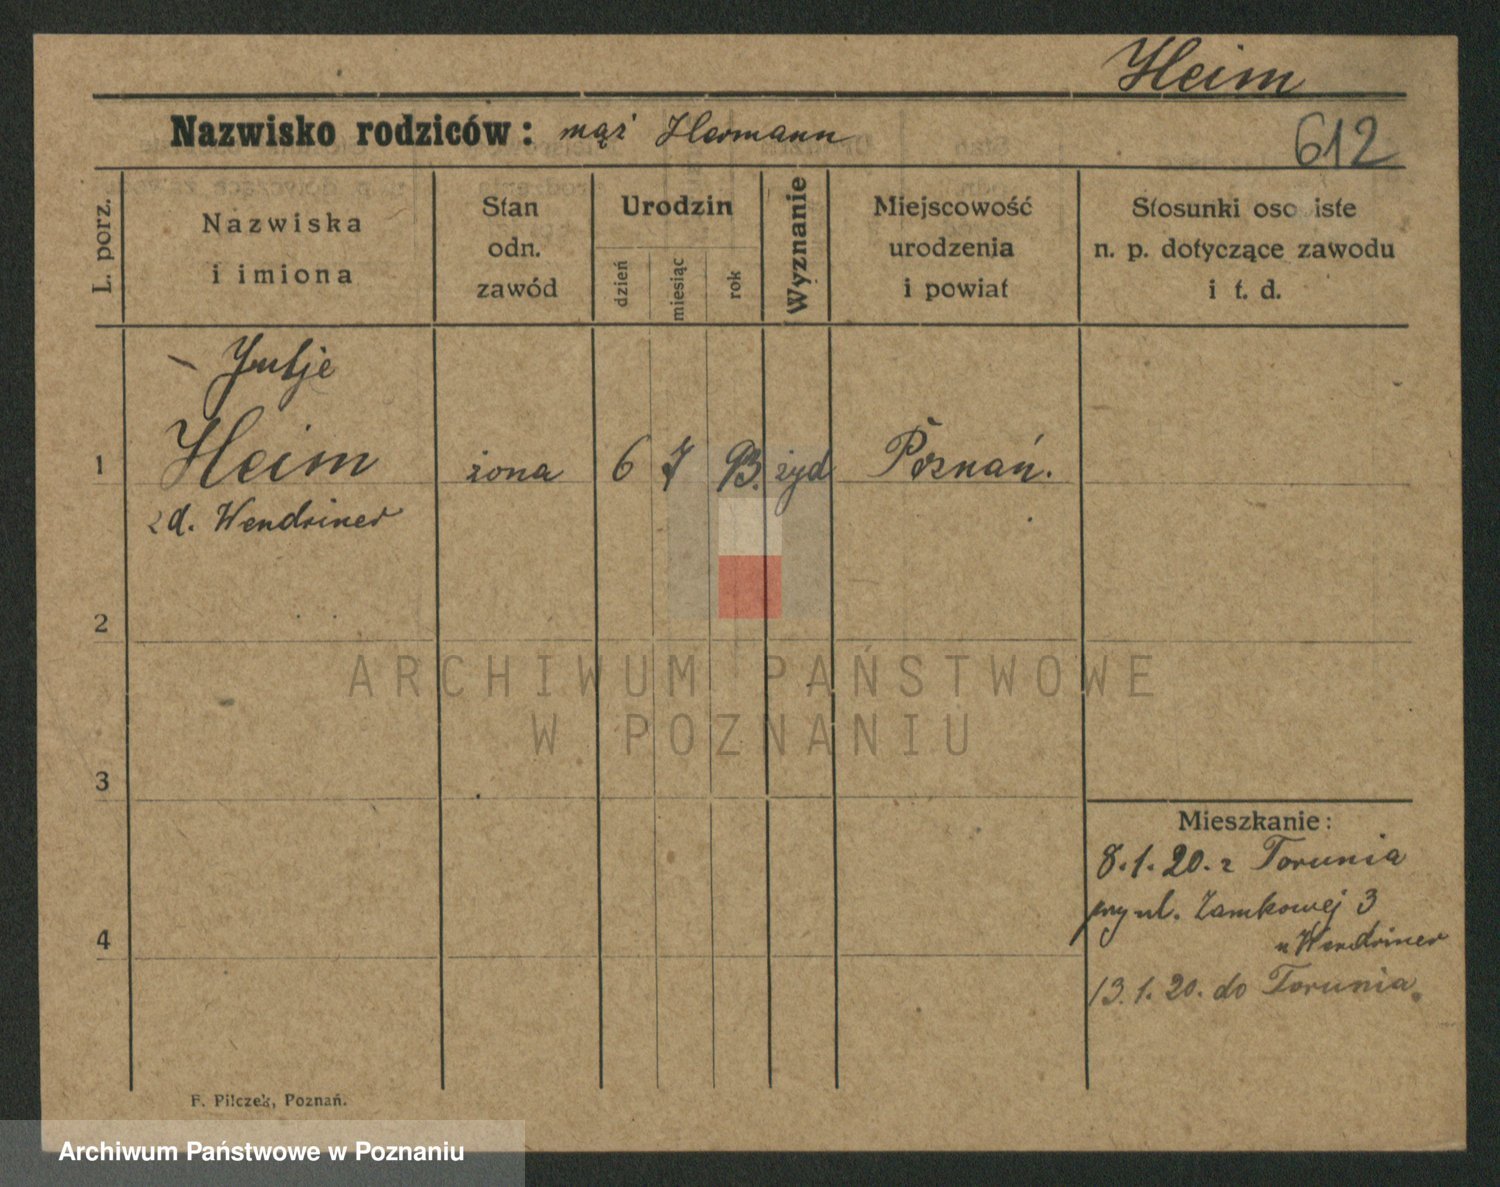 Heim
Nazwisko rodziców: mąż Hermann
612
L. porz.
Nazwiska
i imiona
Stan
odn.
zawód
Urodzin
dzień
miesiąc
rok
Wyznanie
Miejscowość
urodzenia
i powiat
Stosunki oso iste
n. p. dotyczące zawodu
i t. d.
1
Heim
żona
6
7
93.
żyd
Poznań.
zd. Wendriner
2
3
4
Mieszkanie:
8.1.20. z Torunia
przy ul. Zamkowej 3
u Wendriner
13.1.20. do Torunia.
F. Pilczek, Poznań.
ARCHIWUM PAŃSTWOWE
W POZNANIU
Archiwum Państwowe w Poznaniu